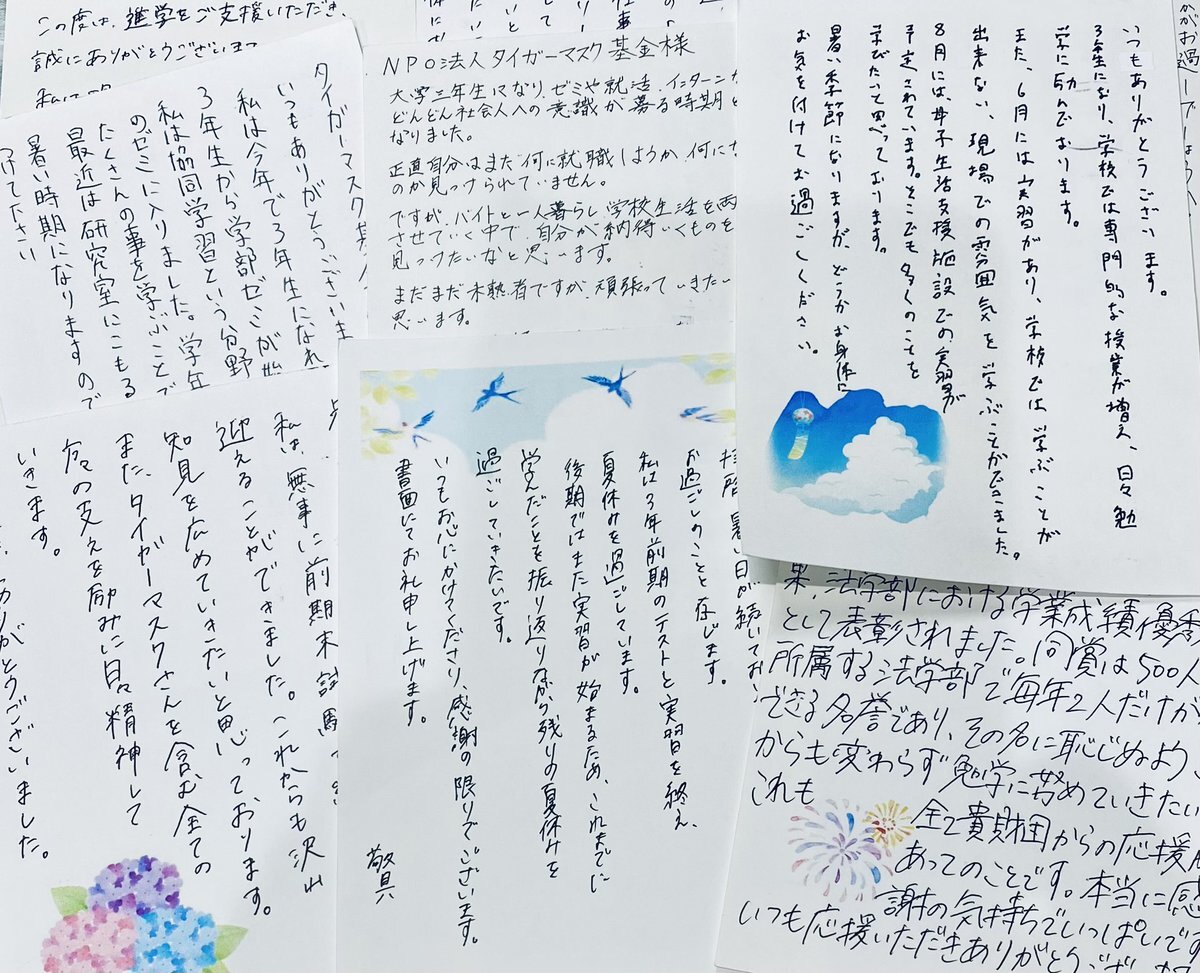 この度は、進学をご支援いただき、
誠にありがとうございます
NPO法人タイガーマスク基金様
大学三年生になり、ゼミや就活、インターン
どんどん社会人への意識が募る時期
なりました。
正直自分はまだ何に就職しようか、何に
のか見つけられていません。
ですが、バイトと一人暮らし、学校生活を両
させていく中で、自分が納得いくものを
見つけたいなと思います。
まだまだ未熟者ですが、頑張っていきたい
思います。
いつもありがとうございます。
3年生になり、学校では専門的な授業が増え、日々勉
学に励んでおります。
また、6月には実習があり、学校では学ぶことが
出来ない、現場での雰囲気を学ぶことができました。
8月には、母子生活支援施設での実習が
予定されています。そこでも多くのことを
学びたいと思っております。
暑い季節になりますが、どうかお身体に
お気を付けてお過ごしください。
タイガーマスク基
いつもありがとうございま
私は今年で3年生になれ
3年生から学部ゼミが
私は協同学習という分野
のゼミに入りました。学年
たくさんの事を学ぶことで
最近は研究室にこもる
暑い時期になりますので
つけてください
私は、無事に前期末試
迎えることができました。これからも沢山
知見を広めていきたいと思っております。
また、タイガーマスクさんを含む全ての
方々の支えを励みに日々精神して
いきます。
ありがとうございました。
拝啓 暑い日が続いてお
お過ごしのことと存じます。
私は3年前期のテストと実習を終え、
夏休みを過ごしています。
後期ではまた実習が始まるため、これまでに
学んだことを振り返りながら残りの夏休みを
過ごしていきたいです。
いつもお心にかけてくださり、感謝の限りでございます。
書面にてお礼申し上げます。
敬具
果、法学部における学業成績優秀
として表彰されました。同賞は500人
所属する法学部で毎年2人だけが
できる名誉であり、その名に恥じぬよう、
からも変わらず勉学に努めていきたい
これも
全て貴財団からの応援
あってのことです。本当に感
謝の気持ちでいっぱいです
いつも応援いただきありがとうござ